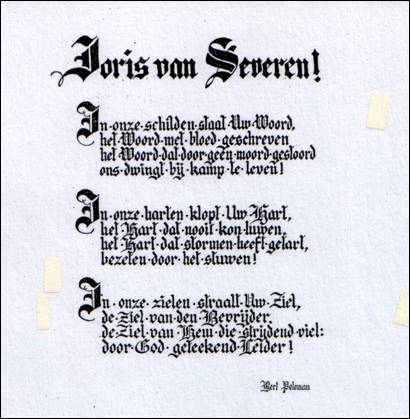 Joris van Severen!
In onze schilden staat Uw Woord,
het Woord met bloed geschreven
het Woord dat door geen moord gestoord
ons dwingt bij kamp te leven!
In onze harten klopt Uw Hart,
het Hart dat nooit kon luwen,
het Hart dat stormen heeft getart,
bezeten door het stuwen!
In onze zielen straalt Uw Ziel,
de Ziel van den Bevrijder,
de Ziel van Hem die strijdend viel:
door God geteekend Leider!
Bert Peleman